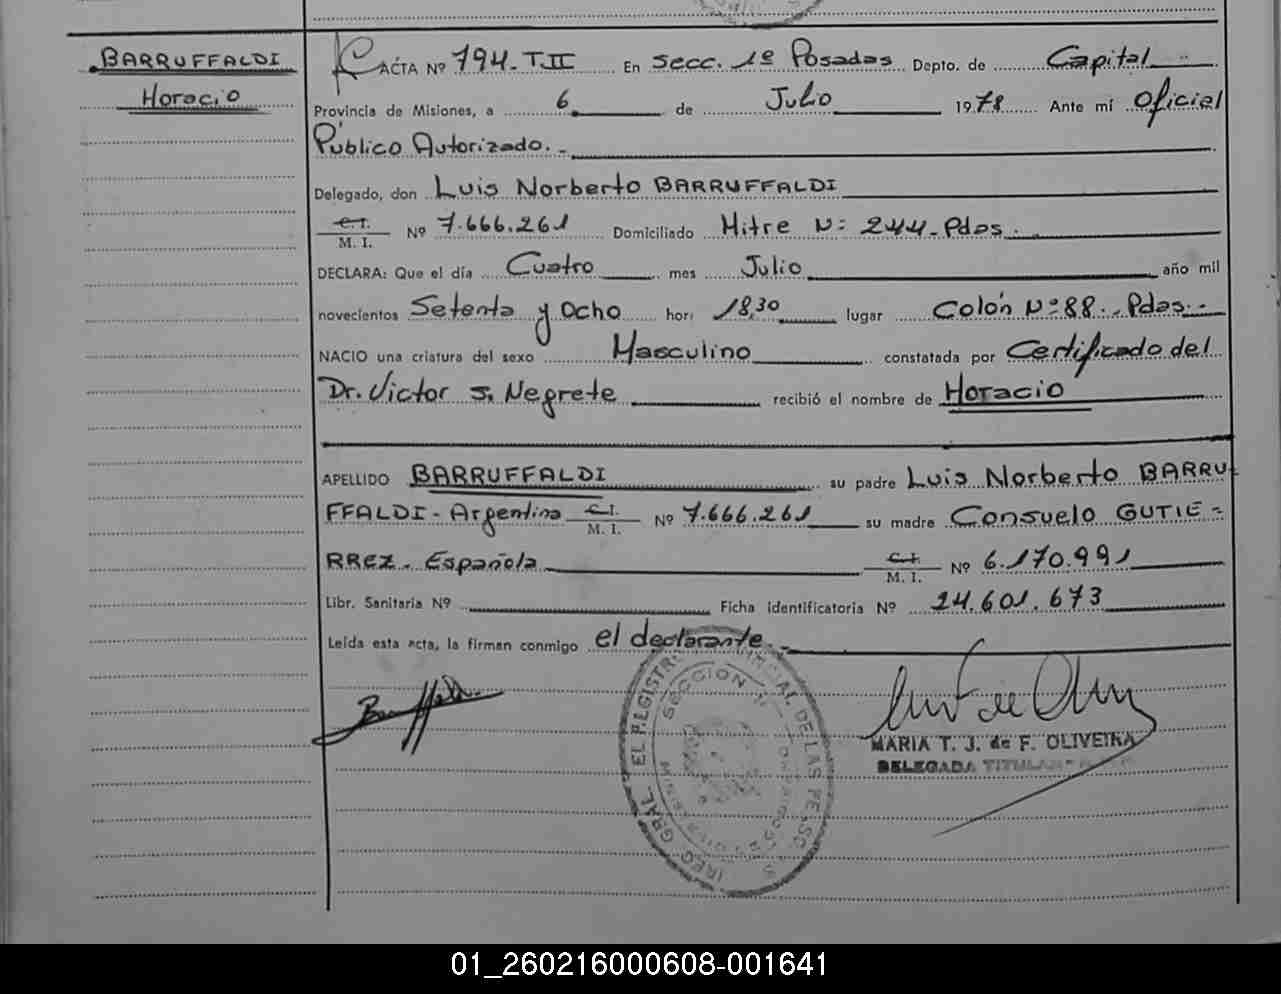 BARRUFFALDI
Horacio
ACTA Nº 794-T.II En Secc. 1º Posadas Depto. de Capital
Provincia de Misiones, a 6 de Julio 1978 Ante mí Oficial
Público Autorizado.-
Delegado, don Luis Norberto BARRUFFALDI
C. I.
M. I. Nº 7.666.261 Domiciliado Mitre Nº 244-Pdas.
DECLARA: Que el día Cuatro mes Julio año mil
novecientos Setenta y Ocho hor: 18,30 lugar Colón Nº 88.-Pdas.-
NACIO una criatura del sexo Masculino constatada por Certificado del
Dr. Victor S. Negrete recibió el nombre de Horacio
APELLIDO BARRUFFALDI su padre Luis Norberto BARRU-
FFALDI- Argentino C. I. M. I. Nº 7.666.261 su madre Consuelo GUTIE-
RREZ- Española C. I. M. I. Nº 6.170.991
Libr. Sanitaria Nº Ficha identificatoria Nº 24.601.673
Leída esta acta, la firman conmigo el declarante.-
SECCION 1ª
MARIA T. J. de F. OLIVEIRA
DELEGADA TITULAR
01_260216000608-001641